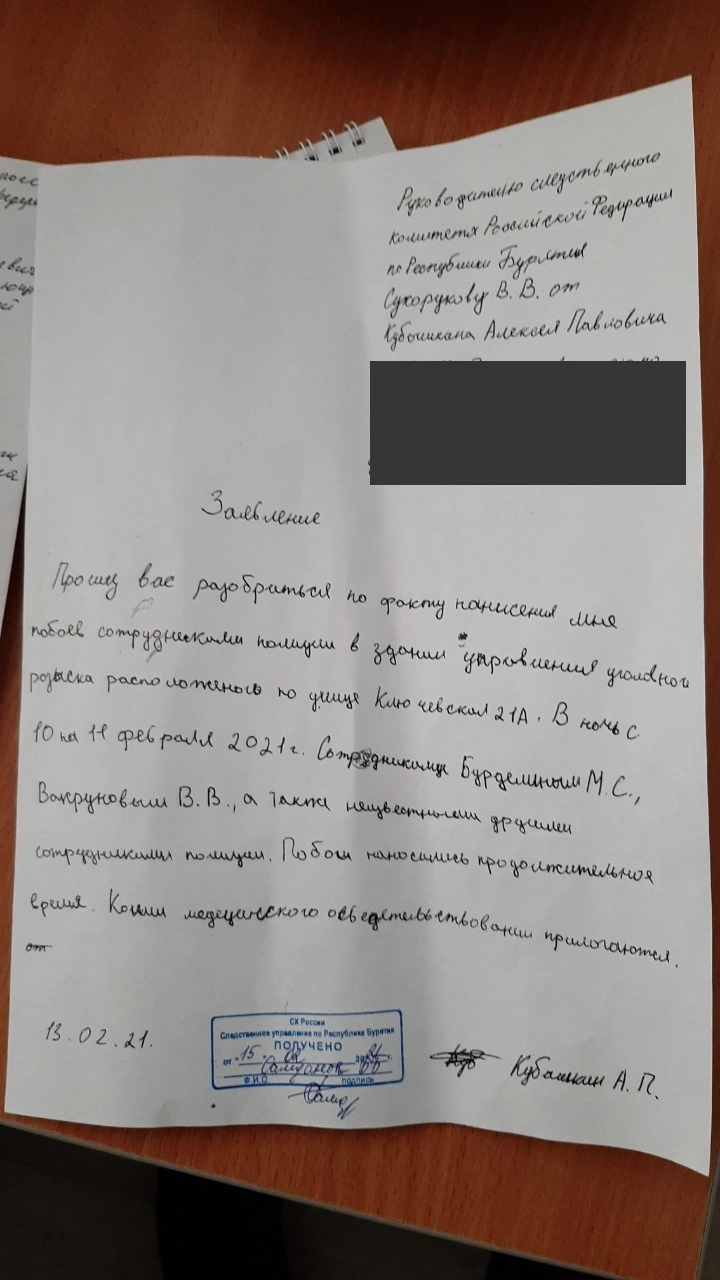 Руководителю следственного
комитета Российской Федерации
по Республики Бурятия
Сухорукову В. В. от
Алексея Павловича
Заявление
Прошу вас разобраться по факту нанисения мне
побоев сотрудниками полиции в здании управления уголовного
розыска расположеного по улице Ключевская 21А. В ночь с
10 на 11 февраля 2021 г. Сотрудниками М.С.,
В.В., а также неизвестными другими
сотрудниками полиции. Побои наносились продолжительное
время. Копии медецинского прилогаются.
от
13.02.21.
СК России
Следственное управление по Республике Бурятия
ПОЛУЧЕНО
от "15" 02 2021 г.
Ф.И.О. подпись
А. П.